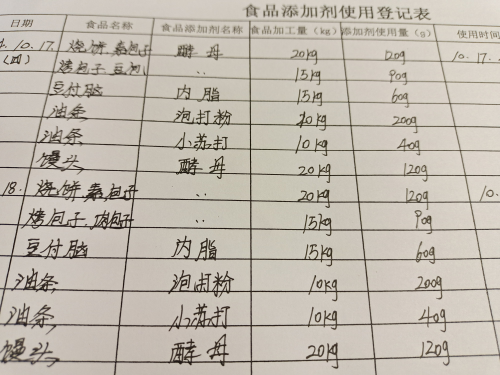 食品添加剂使用登记表
日期 食品名称 食品添加剂名称 食品加工量（kg） 添加剂使用量（g） 使用时间
10.17. 烧饼.素包子 酵母 20kg 120g 10.17.
(四) 烤包子.豆沙 〃 15kg 90g
豆付脑 内脂 15kg 60g
油条 泡打粉 10kg 200g
油条 小苏打 10kg 40g
馒头 酵母 20kg 120g
18. 烧饼.素包子 〃 20kg 120g 10.
烤包子.肉包子 〃 15kg 90g
豆付脑 内脂 15kg 60g
油条 泡打粉 10kg 200g
油条 小苏打 10kg 40g
馒头 酵母 20kg 120g